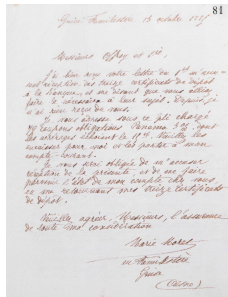 81
Guise Familistère 13 octobre
Messieurs Offroy et Cie,
J'ai bien reçu votre lettre du 1er m'accu-
sant réception des certificats de dépôt
à la banque, et me disant que vous alliez
faire le nécessaire à leur sujet. Depuis je
n'ai rien reçu de vous.
Je vous adresse sous ce pli chargé
obligations Panama 3%, dont
les arrérages échoient le Veuillez les
encaisser pour moi et les porter à mon
compte-courant.
Je vous serai obligée de m'accuser
réception de la présente, et de me faire
parvenir l'état de mon compte chez vous
en me retournant mes treize certificats
de dépôt.
Veuillez agréer, Messieurs, l'assurance
de toute ma considération
Marie Moret
au Familistère
Guise
(Aisne)